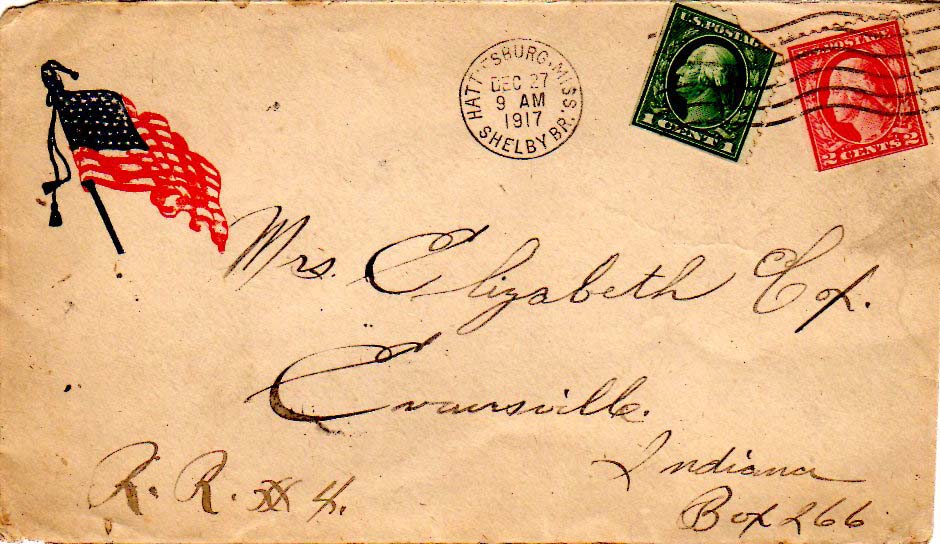 HATTIESBURG, MISS.
DEC 27
9 AM
1917
SHELBY BR.
U.S. POSTAGE
1 CENT 1
U.S. POSTAGE
2 CENTS 2
Mrs. Elizabeth Cox.
Evansville.
Indiana
R. R. # 4.
Box 266